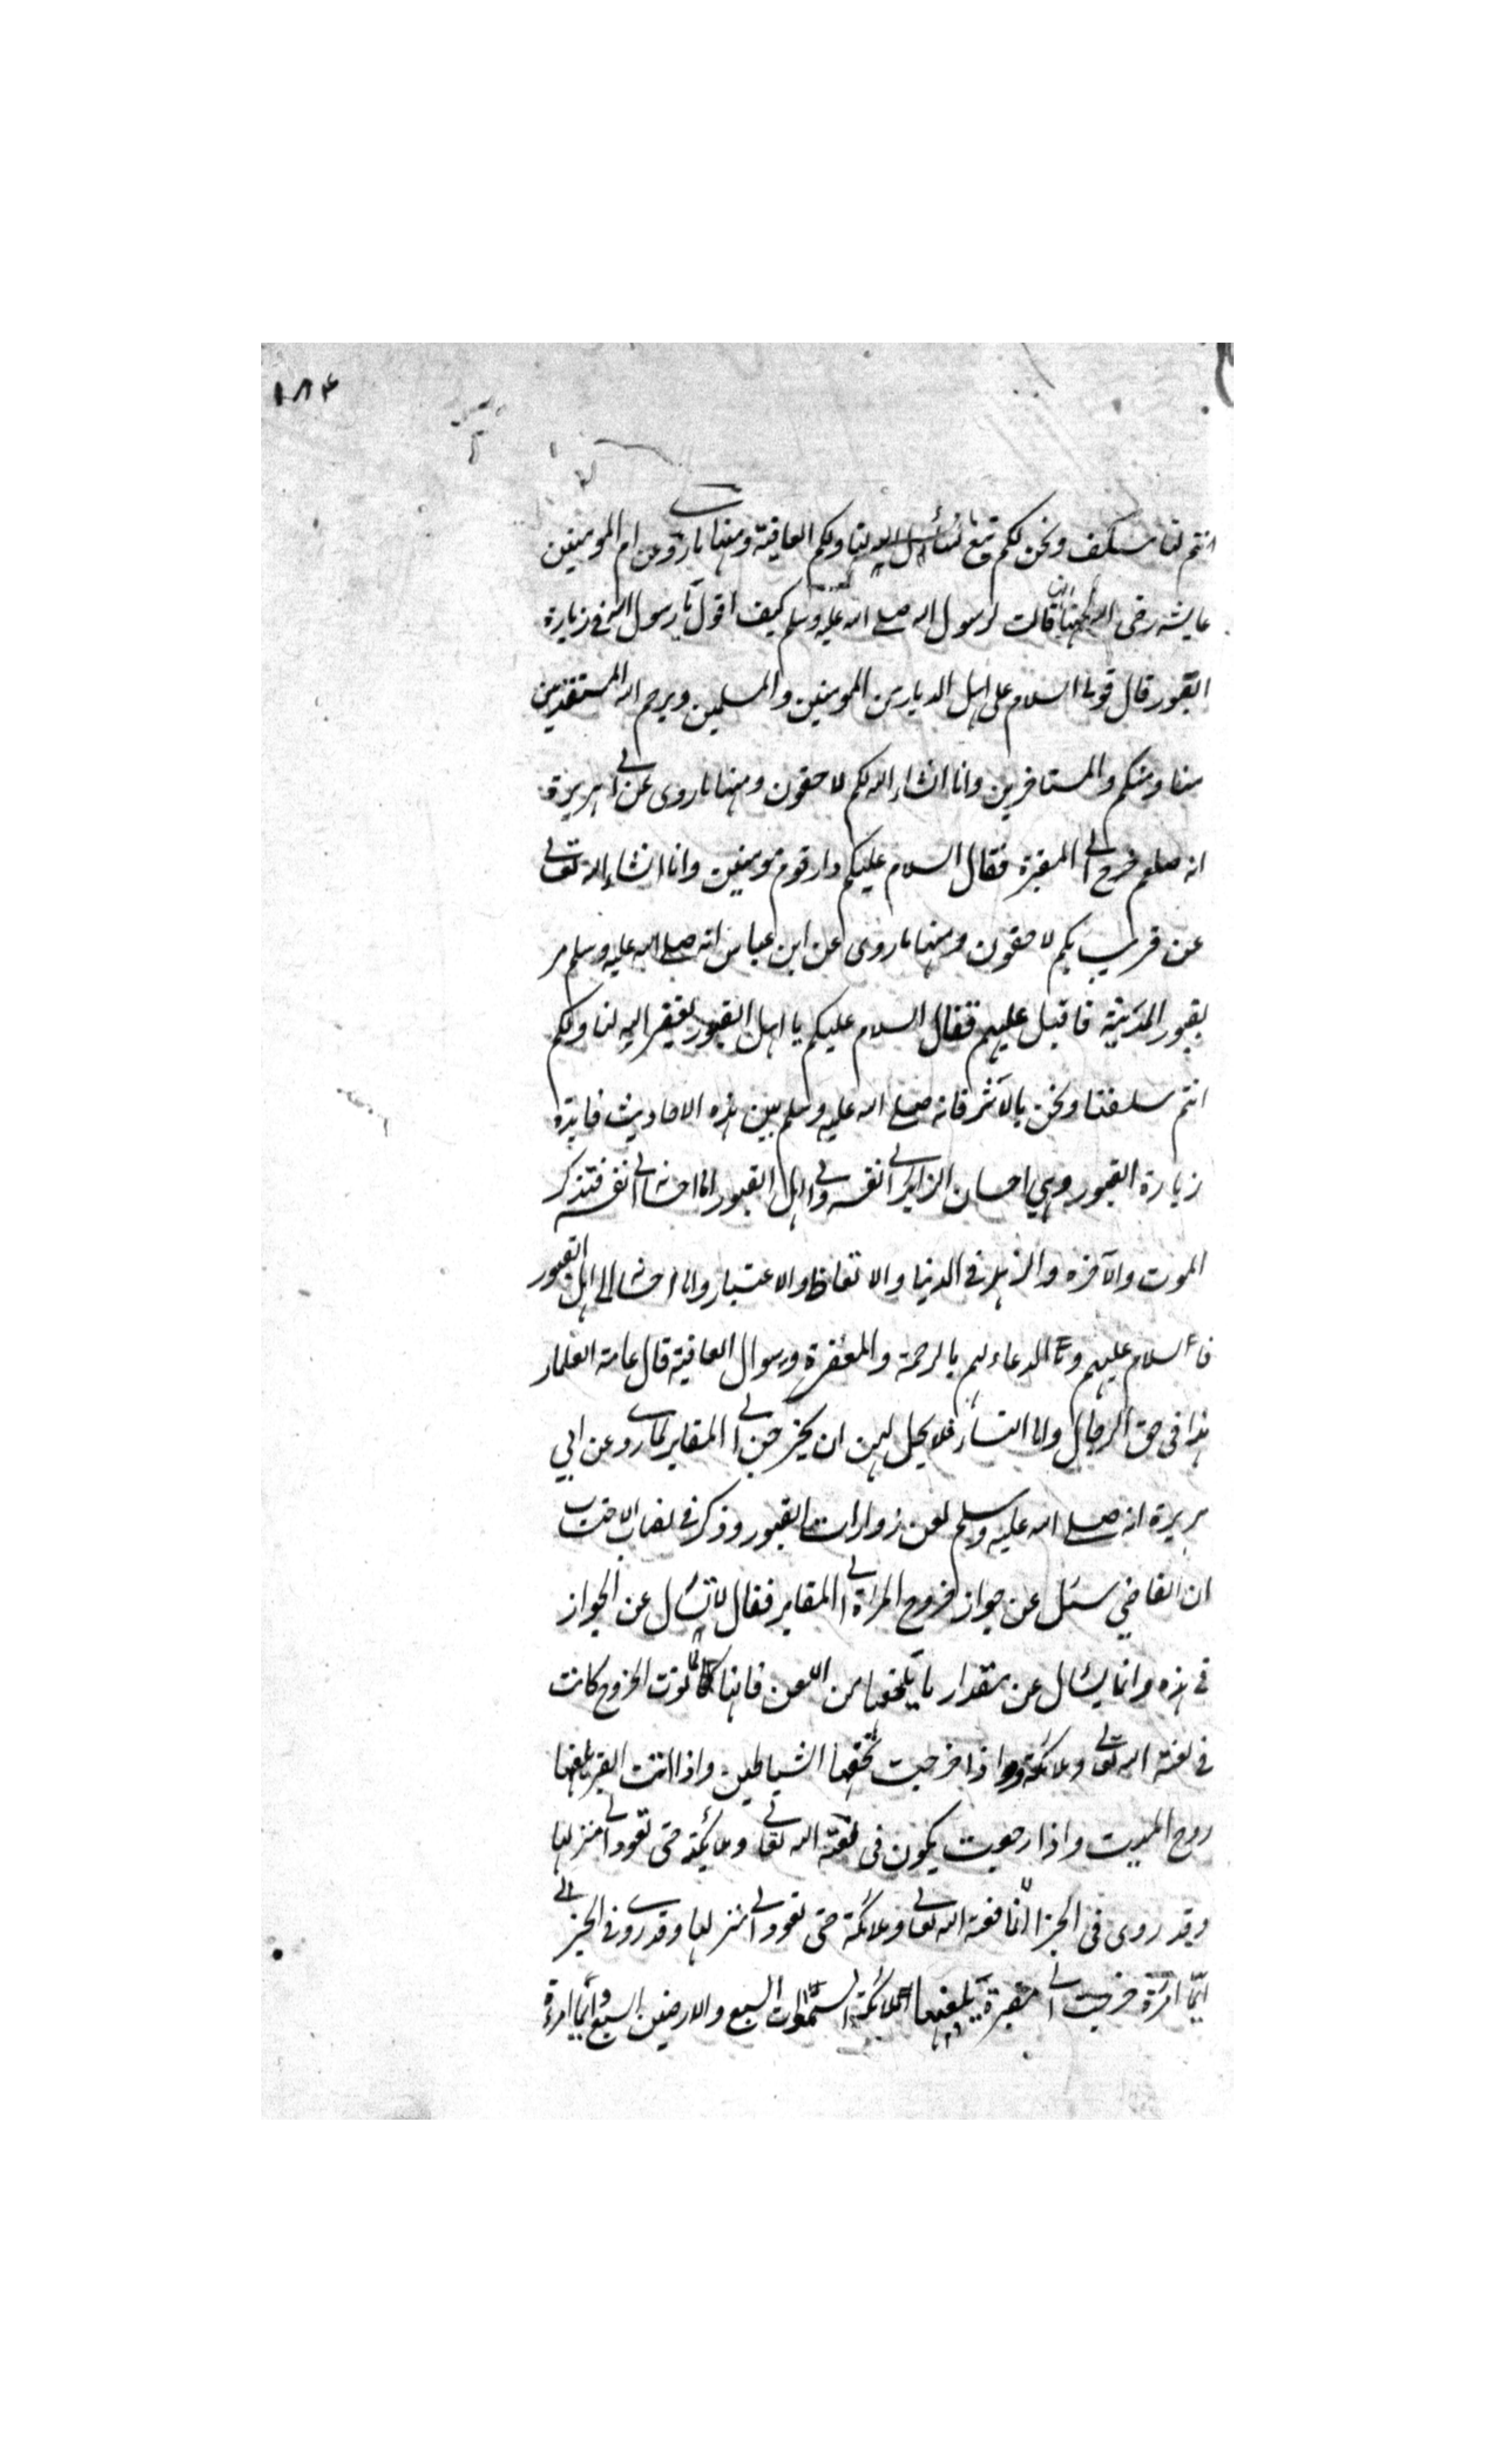 ١٨٤
انتم لنا سلف ونحن لكم تبع نسأل الله لنا ولكم العافية ومنها ما روى عن ام المومنين
عايشه رضى الله عنها انها قالت لرسول الله صلى الله عليه وسلم كيف اقول يا رسول الله فى زيارة
القبور قال قولى السلام على اهل الديار من المومنين والمسلمين ويرحم الله المستقدمين
منا ومنكم والمستاخرين وانا انشاء الله لكم لاحقون ومنها ما روى عن ابى هريرة
انه صلعم خرج الى المقبرة فقال السلام عليكم دار قوم مومنين وانا انشاء الله تعالى
عن قريب بكم لاحقون ومنها ما روى عن ابن عباس انه صلى الله عليه وسلم مر
بقبور المدينة فاقبل عليهم فقال السلام عليكم يا اهل القبور يغفر الله لنا ولكم
انتم سلفنا ونحن بالاثر فانه صلى الله عليه وسلم بين هذه الاحاديث فايدة
زيارة القبور وهي احسان الزاير الى نفسه والى اهل القبور اما احسانه الى نفسه فتذكر
الموت والآخرة والزهد فى الدنيا والاتعاظ والاعتبار واما احسانه الى اهل القبور
فا السلام عليهم والدعاء لهم بالرحمة والمغفرة وسوال العافية قال عامة العلماء
هذا فى حق الرجال واما النساء فلا يحل لهن ان يخرجن الى المقابر لما روى عن ابي
هريرة انه صلى الله عليه وسلم لعن زوارات القبور وذكر فى نصاب الاحتساب
ان القاضي سئل عن جواز خروج المراة الى المقابر فقال لا تسأل عن الجواز
فى هذه وانما يسئال عن مقدار ما يلحقها من اللعن فانها كلما نوت الخروج كانت
فى لعنة الله تعالى وملائكته واذا خرجت تحفها الشياطين واذا اتت القبر يلعنها
روح الميت واذا رجعت يكون فى لعنة الله تعالى وملائكته حتى تعود الى منزلها
وقد روى فى الخبر انها فى لعنة الله تعالى وملائكته حتى تعود الى منزلها وقد روى فى الخبر
ايما امرءة خرجت الى مقبرة يلعنها ملائكة السموات السبع والارضين السبع وايما امرءة